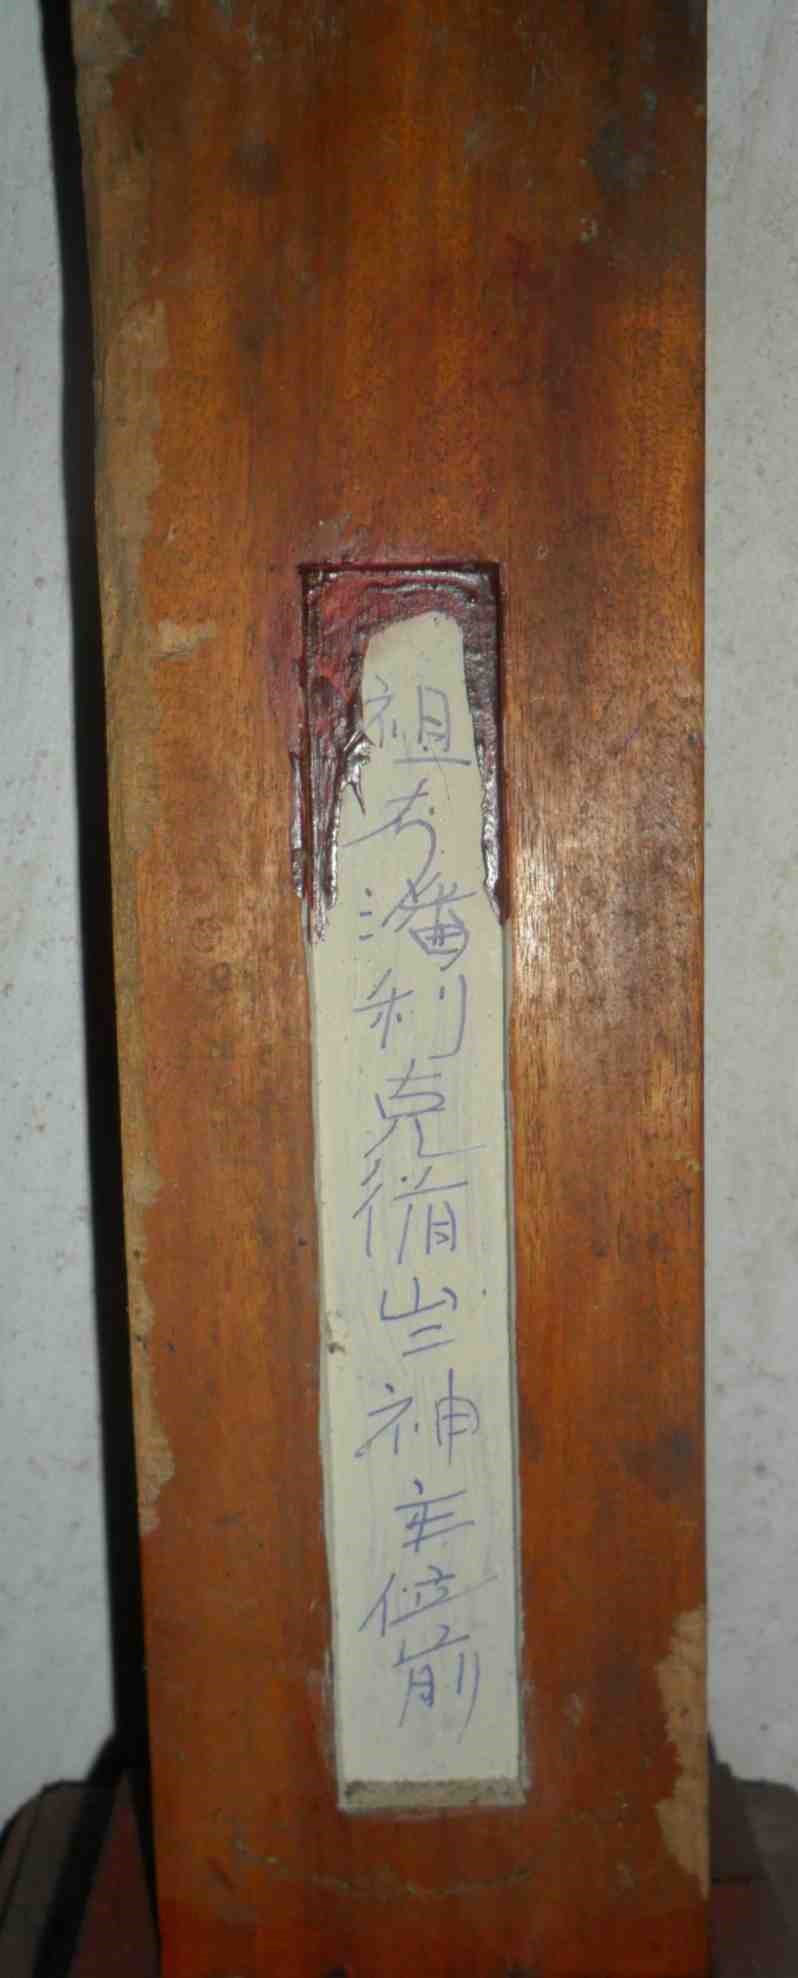 祖考潘利克脩神主位前